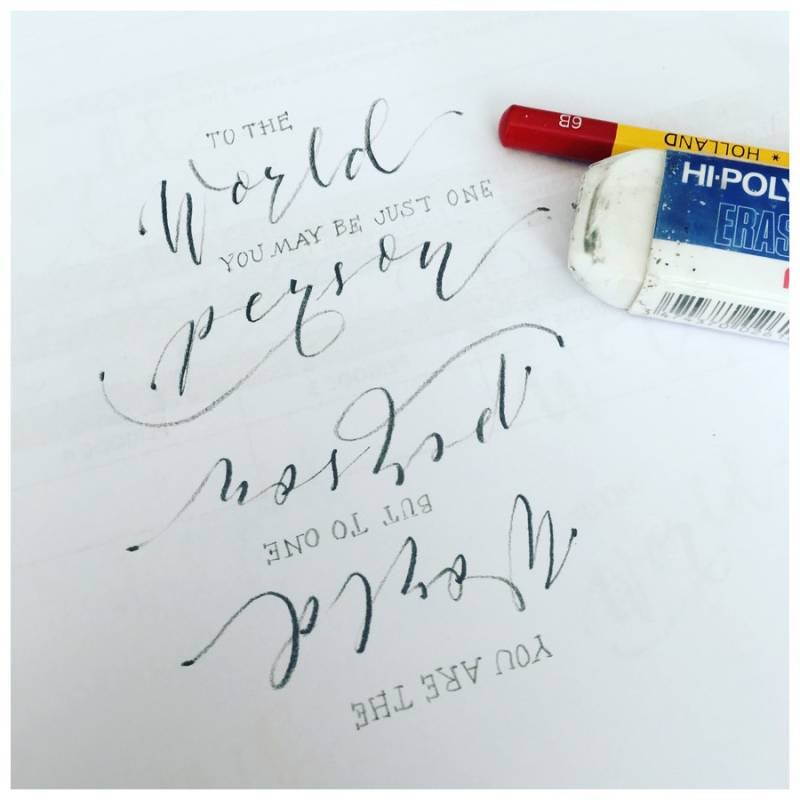 TO THE
World
YOU MAY BE JUST ONE
person
YOU ARE THE
World
BUT TO ONE
person
* HOLLAND 6B
HI-POLY
ERAS